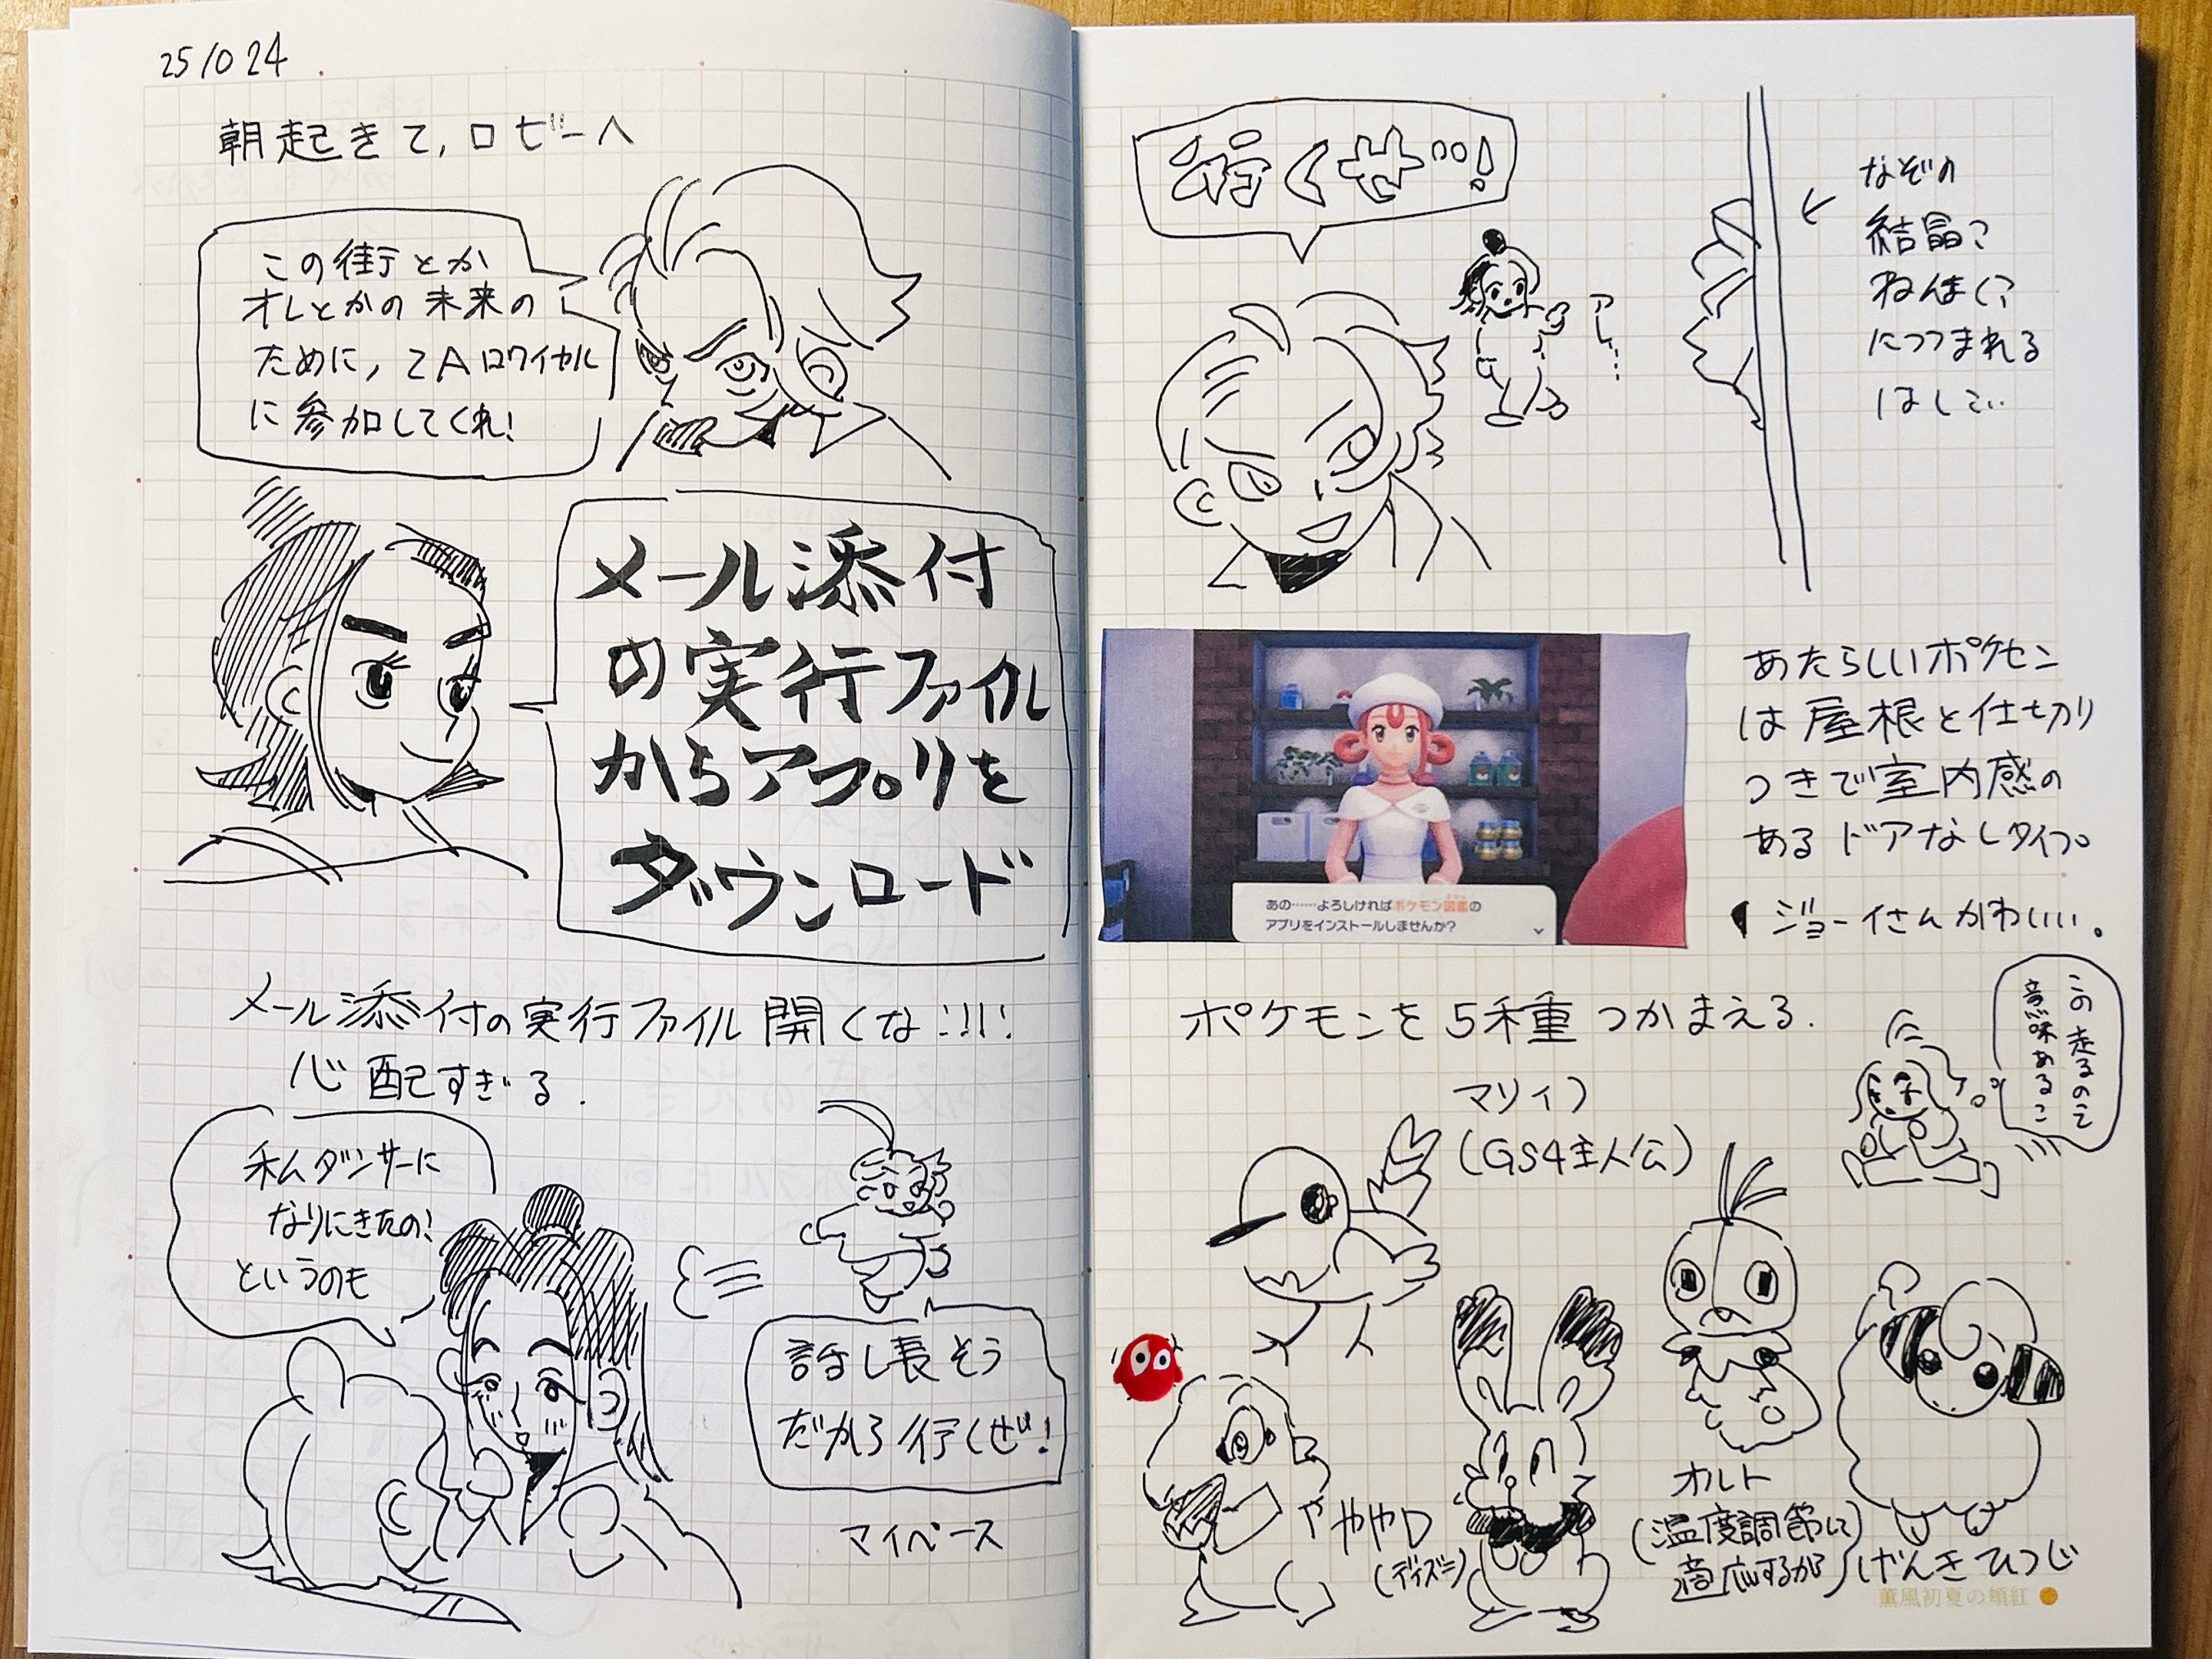 251024
朝起きて,ロビーへ
この街とか
オレとかの未来の
ために,ZAロワイヤル
に参加してくれ!
メール添付
の実行ファイル
からアプリを
ダウンロード
メール添付の実行ファイル開くな!!!!
心配すぎる.
私ダンサーに
なりにきたの!
というのも
話し長そう
だから行くぜ!
マイペース
行くぜ!
アレ…
なぞの
結晶?
ねんまく?
につつまれる
はしご..
あたらしいポケセン
は屋根と仕切り
つきで室内感の
あるドアなしタイプ。
ジョーイさんかわいい。
あの……よろしければポケモン図鑑の
アプリをインストールしませんか?
ポケモンを5種重つかまえる.
この走るのて
意味あるこ
マリィ
(GS4主人公)
ややや
(ディズニ)
オルト
(温度調節して
適応するから)
げんきひつじ
薫風初夏の頬紅